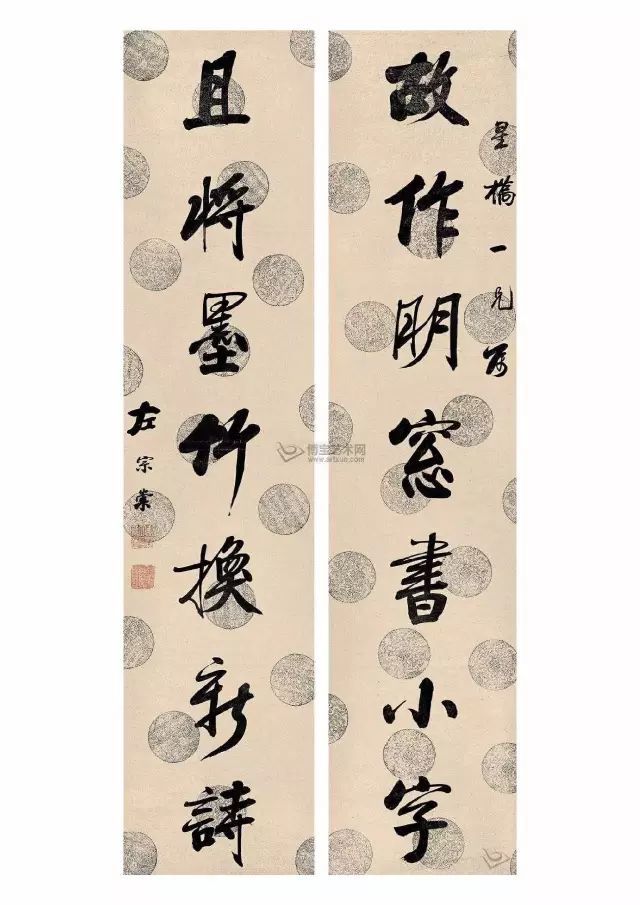 星橋一兄属
故作明窓書小字
且将墨竹換新詩
左宗棠
博宝艺术网
www.artxun.com